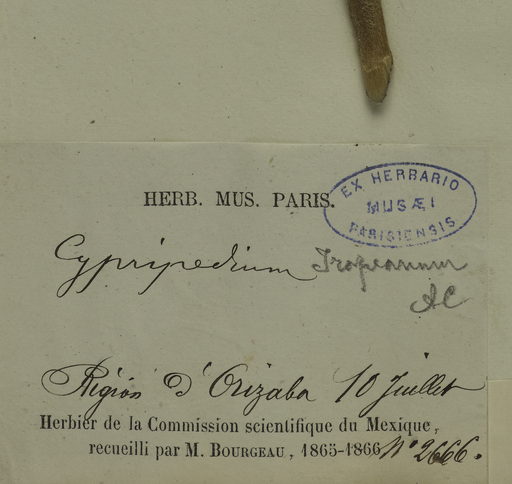 HERB. MUS. PARIS.
EX HERBARIO
MUSÆI
PARISIENSIS
Cypripedium Irapeanum
AC
Région d'Orizaba 10 Juillet
Herbier de la Commission scientifique du Mexique,
recueilli par M. BOURGEAU, 1865-1866 N° 2666.